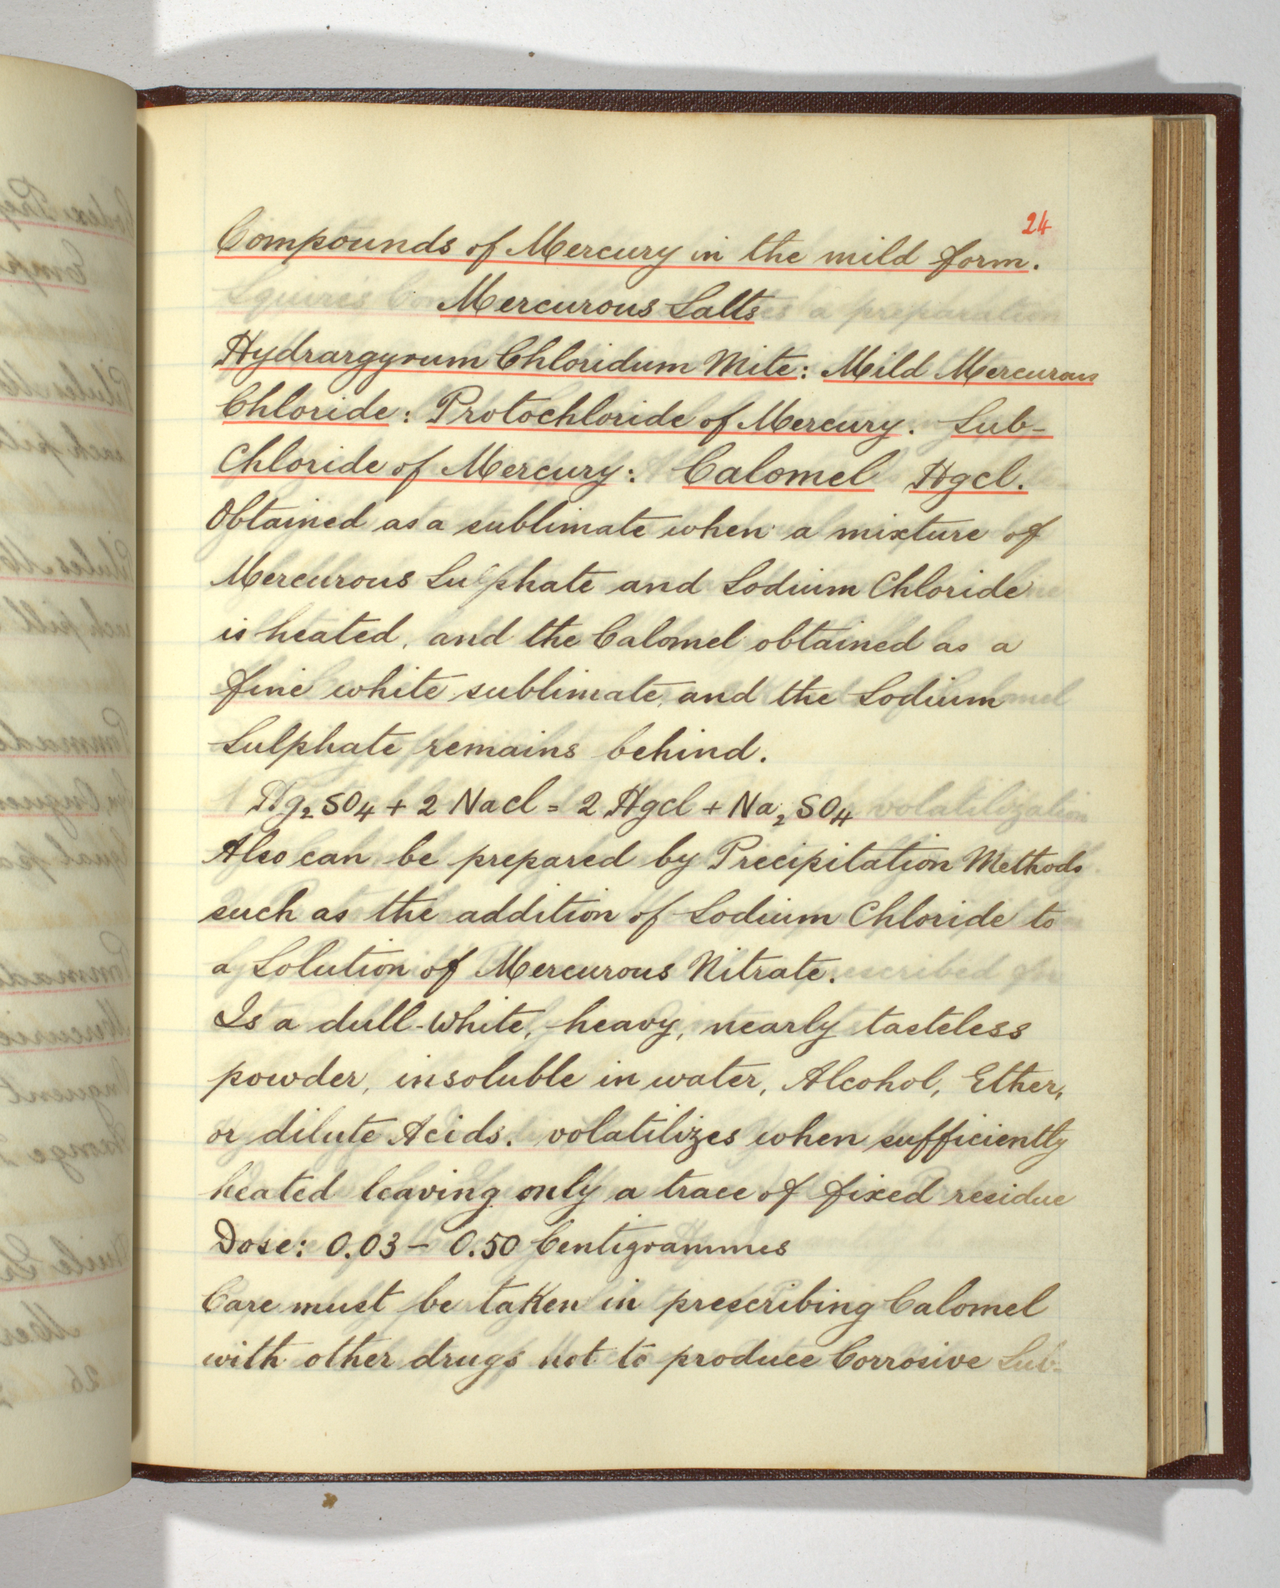 24
Compounds of Mercury in the mild form.
Mercurous Salts
Hydrargyrum Chloridum Mite: Mild Mercurous
Chloride: Protochloride of Mercury: Sub-
Chloride of Mercury: Calomel Hgcl.
Obtained as a sublimate when a mixture of
Mercurous Sulphate and Sodium Chloride
is heated, and the Calomel obtained as a
fine white sublimate, and the Sodium
Sulphate remains behind.
Hg₂SO₄ + 2 Nacl = 2 Hgcl + Na₂SO₄
Also can be prepared by Precipitation Methods
such as the addition of Sodium Chloride to
a Solution of Mercurous Nitrate.
Is a dull-white, heavy, nearly tasteless
powder, insoluble in water, Alcohol, Ether,
or dilute Acids. volatilizes when sufficiently
heated leaving only a trace of fixed residue
Dose: 0.03 – 0.50 Centigrammes
Care must be taken in prescribing Calomel
with other drugs not to produce Corrosive Sub-